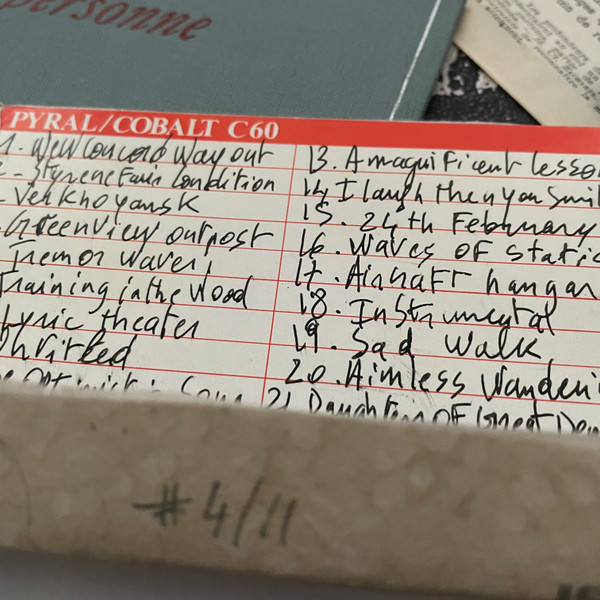 personne
PYRAL/COBALT C60
1. New Concord Way out
Styrene Fair Condition
Verkhoyansk
Greenview outpost
Tremor waves
Training in the Wood
Lyric theater
Thrifted
13. A magnificent lesso
14. I laugh then you Smil
15. 24th February
16. Waves of static
17. Aircraft hangar
18. Instrumental
19. Sad Walk
20. Aimless Wanderi
21. Daughters of Great
#4/11